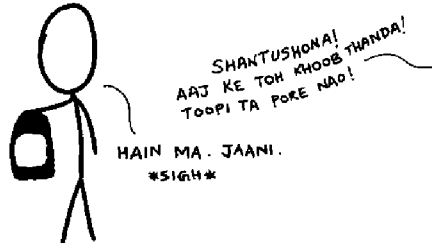 SHANTUSHONA!
AAJ KE TOH KHOOB THANDA!
TOOPI TA PORE NAO!
HAIN MA. JAANI.
*SIGH*